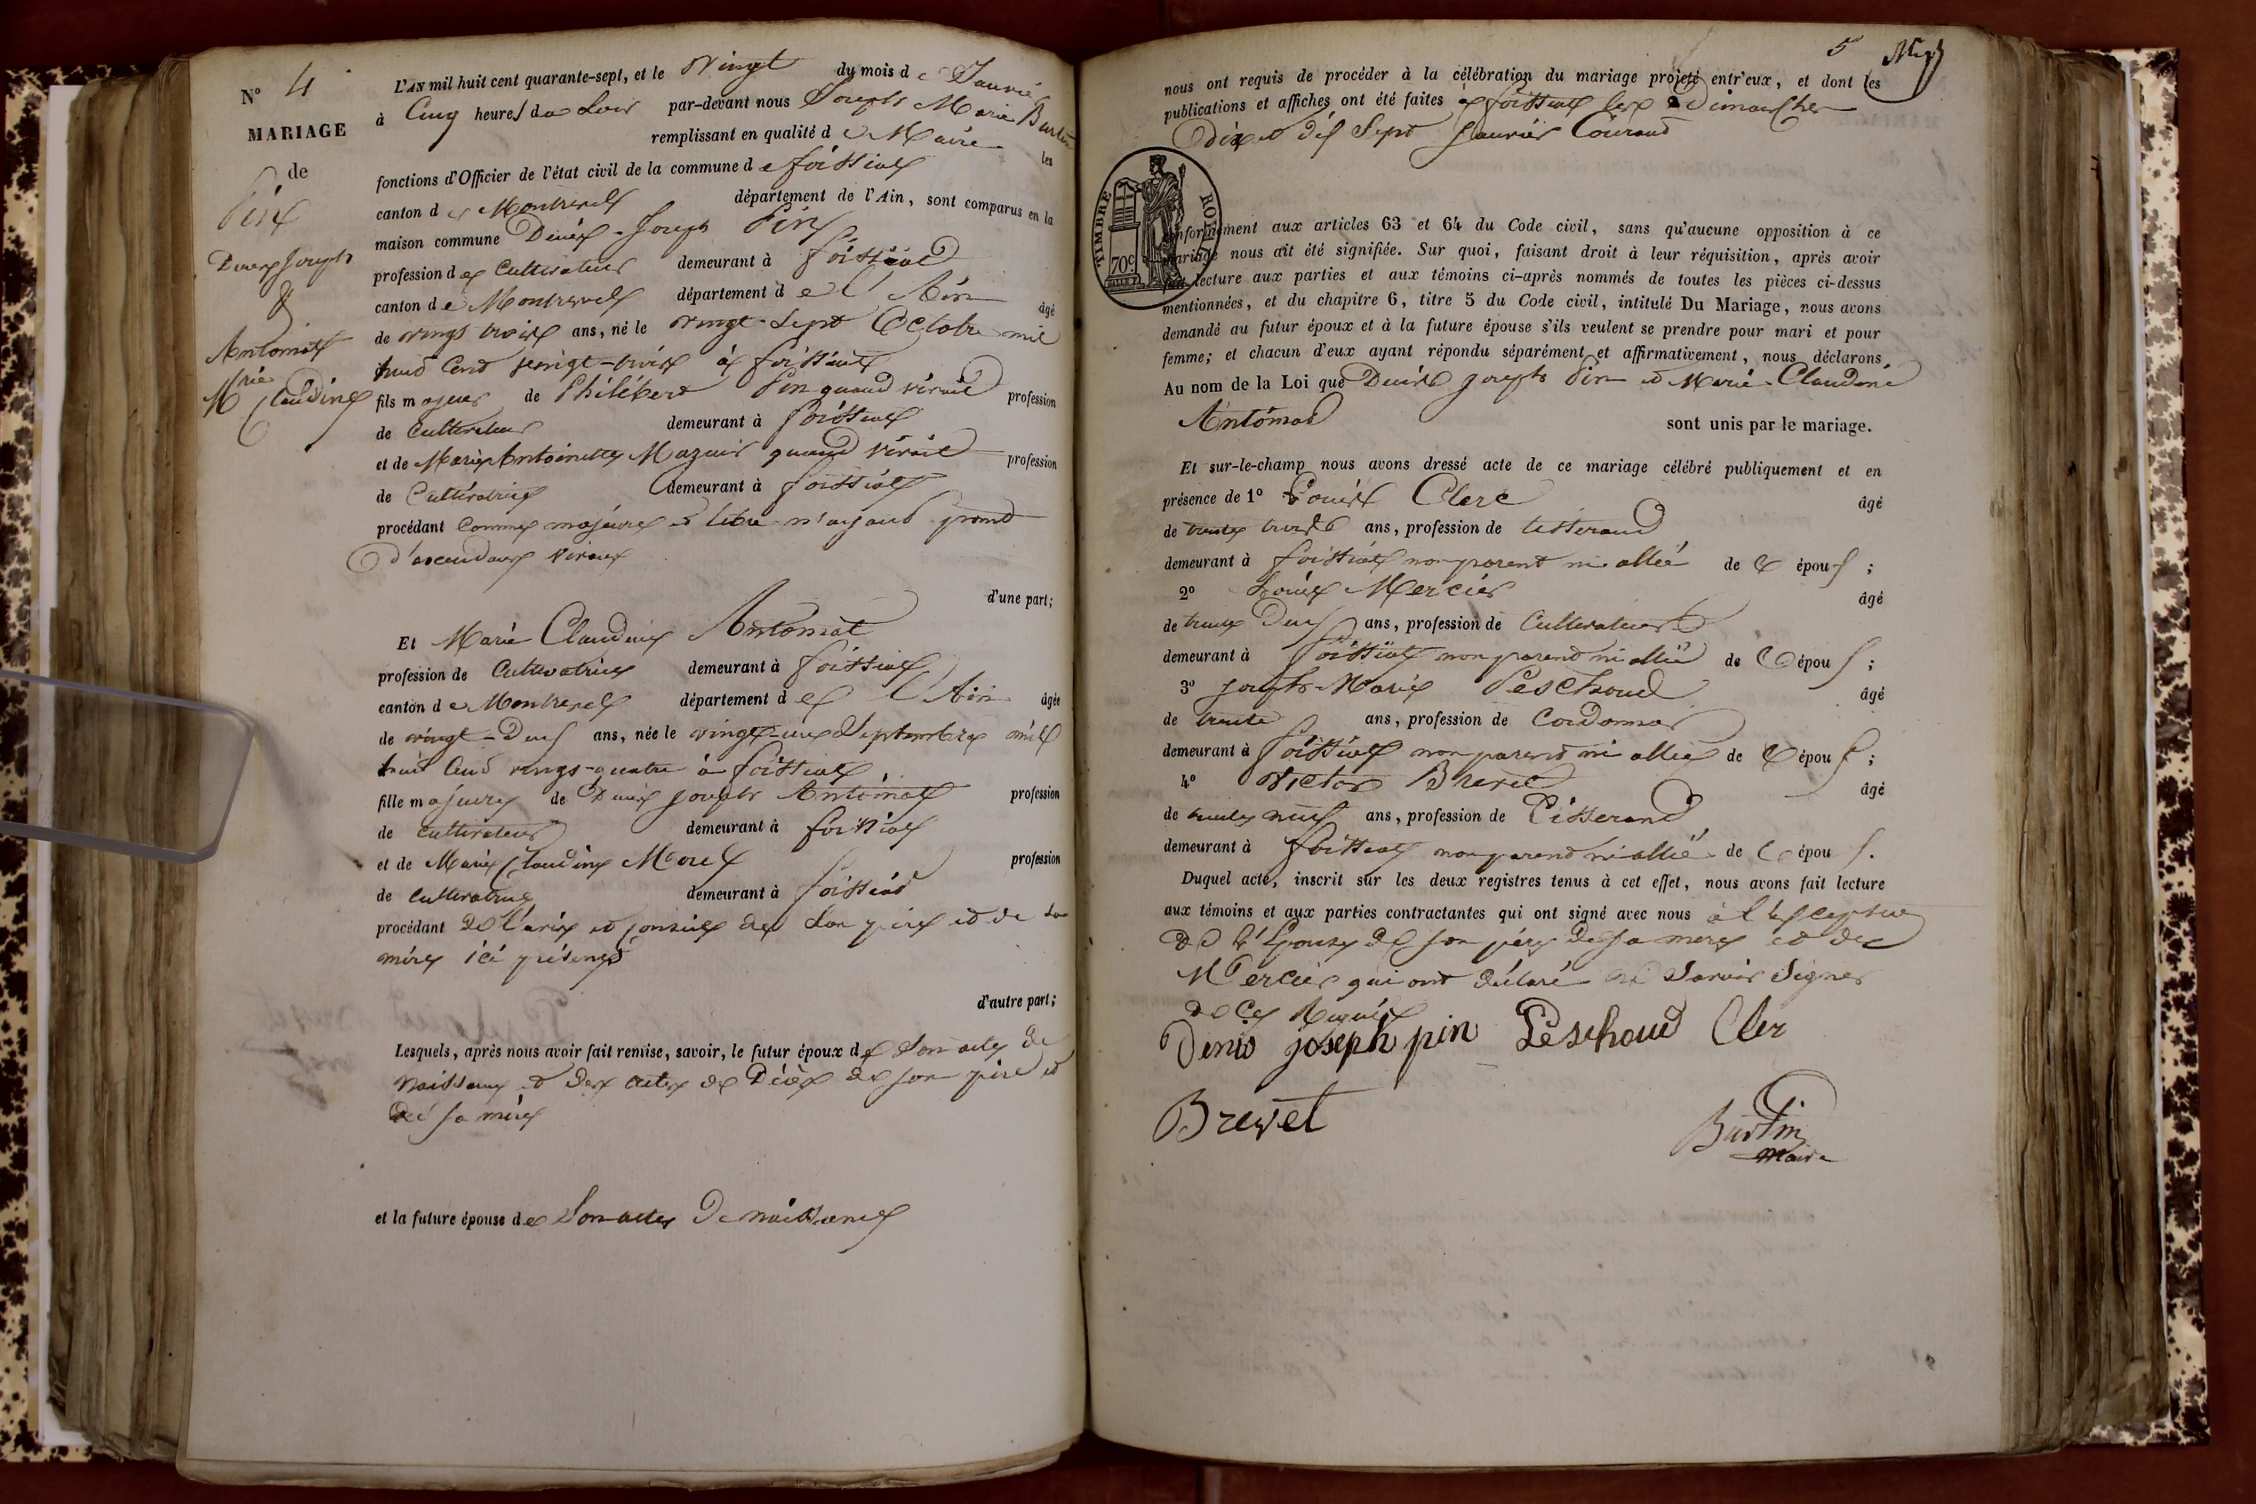 N° 4
MARIAGE
de
Pin
Denis Joseph
&
Antomat
Mrie Claudine
L'AN mil huit cent quarante-sept, et le Vingt du mois de Janvier
à Cinq heures du Soir par-devant nous Joseph Marie Burtin
remplissant en qualité de Maire les
fonctions d'Officier de l'état civil de la commune de foissiat
canton de Montrevel département de l'Ain, sont comparus en la
maison commune Denis Joseph Pin
profession de Cultivateur demeurant à foissiat
canton de Montrevel département de l'Ain âgé
de vingt trois ans, né le vingt-Sept Octobre mil
huit Cent vingt-trois à foissiat
fils majeur de Philibert Pin quand vivait profession
de Cultivateur demeurant à foissiat
et de Marie Antoinette Mazuir quand vivait profession
de Cultivatrice demeurant à foissiat
procédant Comme majeur et libre n'ayant point
d'ascendans vivans
d'une part;
Et Marie Claudine Antomat
profession de Cultivatrice demeurant à foissiat
canton de Montrevel département de l'Ain âgée
de vingt-Deux ans, née le vingt-un Septembre mil
huit Cent vingt-quatre à foissiat
fille majeure de Denis Joseph Antomat profession
de cultivateur demeurant à foissiat
et de Marie Claudine Morel profession
de cultivatrice demeurant à foissiat
procédant de l'avis et conseil de son père et de sa
mère ici présents
d'autre part;
Lesquels, après nous avoir fait remise, savoir, le futur époux de Son acte de
naissance et des actes de Décès de son père et
de sa mère
et la future épouse de Son acte De naissance
5
nous ont requis de procéder à la célébration du mariage projeté entr'eux, et dont les
publications et affiches ont été faites à foissiat les Dimanches
Dix et dix Sept Janvier Courant
TIMBRE ROYAL
70c
conformément aux articles 63 et 64 du Code civil, sans qu'aucune opposition à ce
mariage nous ait été signifiée. Sur quoi, faisant droit à leur réquisition, après avoir
fait lecture aux parties et aux témoins ci-après nommés de toutes les pièces ci-dessus
mentionnées, et du chapitre 6, titre 5 du Code civil, intitulé Du Mariage, nous avons
demandé au futur époux et à la future épouse s'ils veulent se prendre pour mari et pour
femme; et chacun d'eux ayant répondu séparément et affirmativement, nous déclarons,
Au nom de la Loi que Denis Joseph Pin et Marie-Claudine
Antomat sont unis par le mariage.
Et sur-le-champ nous avons dressé acte de ce mariage célébré publiquement et en
présence de 1° Louis Clerc âgé
de trente trois ans, profession de tisserand
demeurant à foissiat non parent ni allié de épou ;
2° Louis Mercier âgé
de trente Deux ans, profession de Cultivateur
demeurant à foissiat non parent ni allié de épou ;
3° Joseph-Marie Peschoud âgé
de trente ans, profession de Cordonnier
demeurant à foissiat non parent ni allié de épou ;
4° Victor Brevet âgé
de trente neuf ans, profession de Tisserand
demeurant à foissiat non parent ni allié de épou .
Duquel acte, inscrit sur les deux registres tenus à cet effet, nous avons fait lecture
aux témoins et aux parties contractantes qui ont signé avec nous à l'exception
de l'Epouse de son père de sa mère et de
Mercier qui ont déclaré ne Savoir Signer
de Ce Requis
Denis joseph pin Peschoud Cler
Brevet
Burtin
Maire